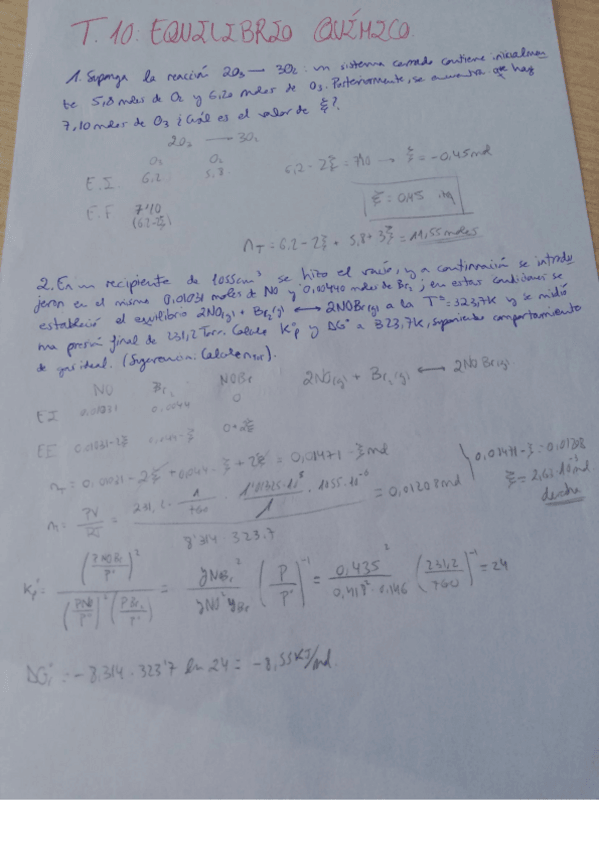 T.10: EQUILIBRIO QUÍMICO.
1. Suponga la reacción 2O3 → 3O2: un sistema cerrado contiene inicialmen
te 5,8 moles de O2 y 6,20 moles de O3. Posteriormente, se encuentra que hay
7,10 moles de O3 ¿Cuál es el valor de ξ?
2O3 → 3O2
O3 O2
E.I. 6,2 5,8
6,2 - 2ξ = 7,10 → ξ = -0,45 mol
E.F 7'10
(6,2-2ξ)
ξ = 0,45
nT = 6,2 - 2ξ + 5,8 + 3ξ = 11,55 moles
2. En un recipiente de 1055 cm³ se hizo el vacío, y a continuación se introdu
jeron en el mismo 0,01031 moles de NO y 0,00440 moles de Br2; en estas condiciones se
estableció el equilibrio 2NO(g) + Br2(g) ⟷ 2NOBr(g) a la Tª = 323,7K y se midió
una presión final de 231,2 Torr. Calcule Kºp y ΔGº a 323,7K, suponiendo comportamiento
de gas ideal. (Sugerencia: Calcule nT).
NO Br2 NOBr
2NO(g) + Br2(g) ⟷ 2NOBr(g).
EI 0,01031 0,0044 0
EE 0,01031-2ξ 0,0044-ξ 0+2ξ
nT = 0,01031 - 2ξ + 0,0044 - ξ + 2ξ = 0,01471 - ξ mol
0,01471 - ξ = 0,01208
ξ = 2,63·10⁻³ mol
n = PV/RT = 231,2 · 1/760 · 1'01325·10⁵/1 · 1055·10⁻⁶ / 8'314 · 323,7 = 0,01208 mol
Kºp = (PNOBr/Pº)² / (PNO/Pº)² (PBr2/Pº) = yNOBr² / yNO² yBr2 (P/Pº)⁻¹ = 0,435² / 0,418² · 0,146 (231,2/760)⁻¹ = 24
ΔGº = -8,314 · 323'7 ln 24 = -8,55 KJ/mol.